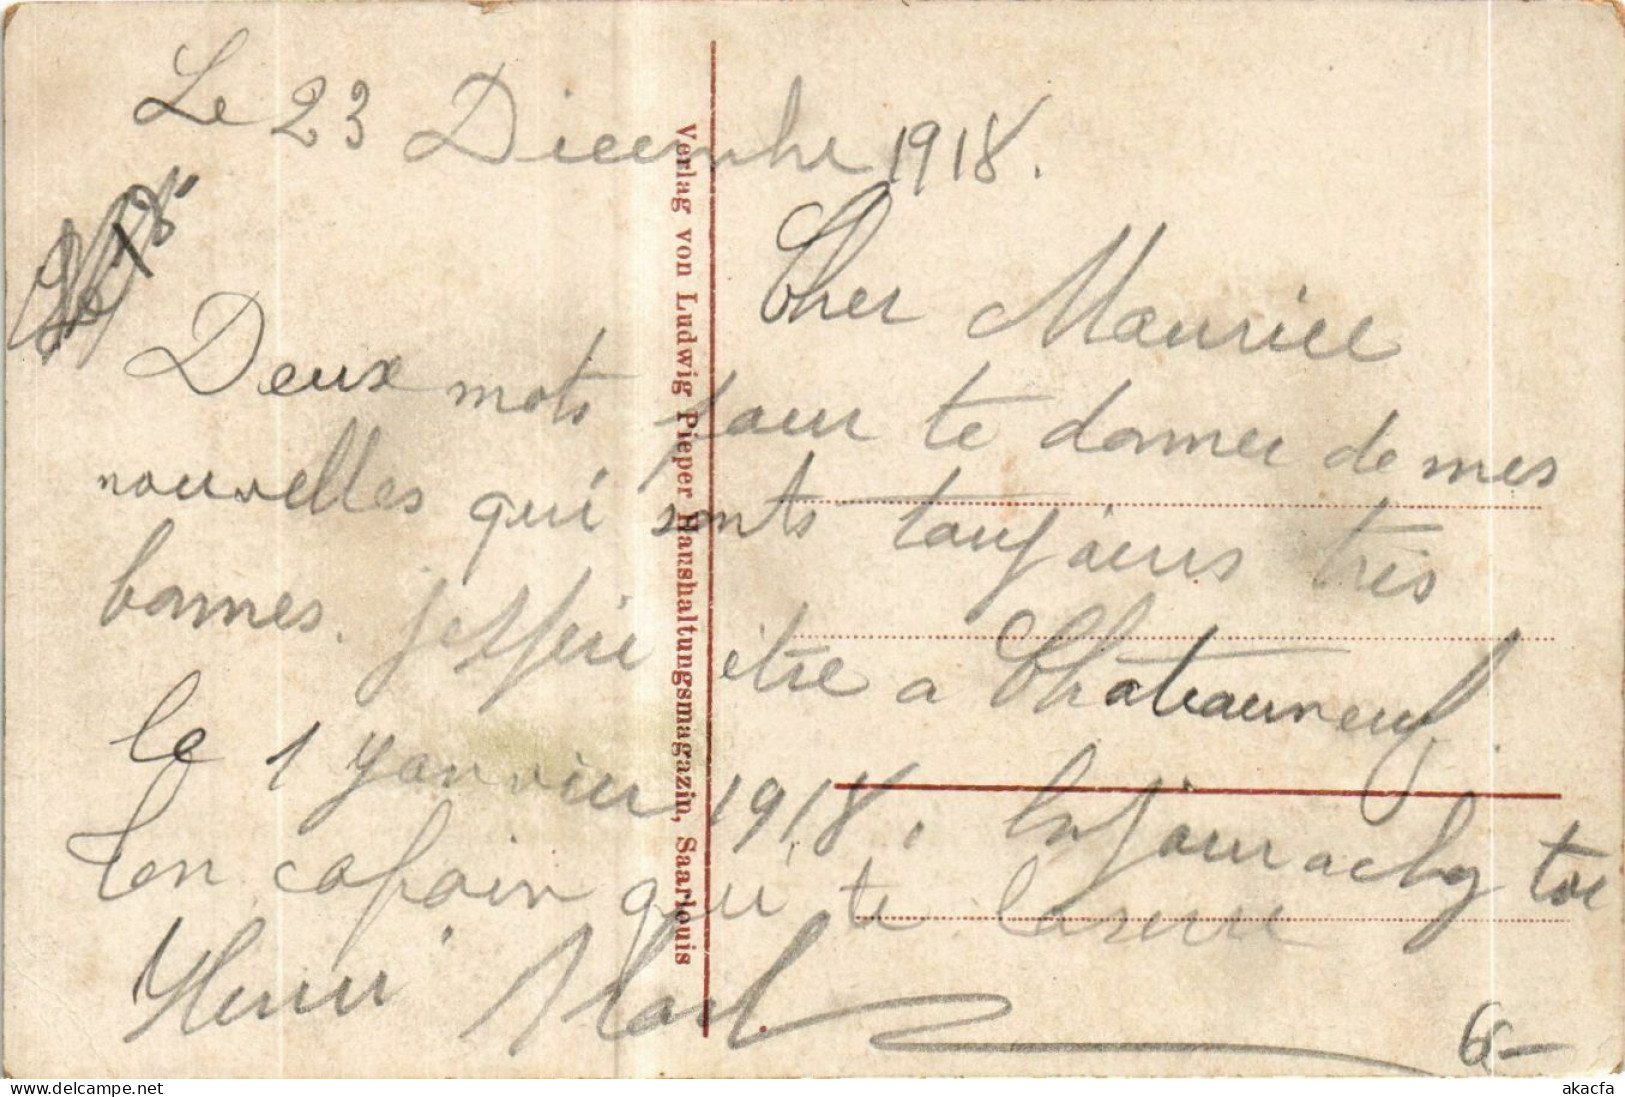 Le 23 Decembre 1918.
Cher Maurice
Deux mots pour te donner de mes
nouvelles qui sonts toujours très
bonnes. j'espère être a Châteauneuf
le 1 Janvier 1918. bonjour a chez toi
Ton copain qui te la serre
Henri
Verlag von Ludwig Pieper Hanshaltungsmagazin, Saarlouis
6-
akacfa